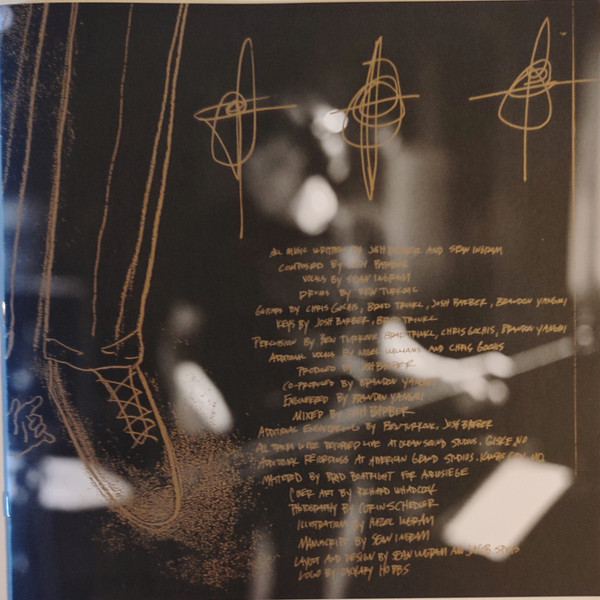 ALL MUSIC WRITTEN BY JOSH BARBER AND SEAN INGRAM
COMPOSED BY JOSH BARBER
VOCALS BY SEAN INGRAM
DRUMS BY BEN TURKOVIC
GUITARS BY CHRIS GOCHIS, BRAD TRUNKL, JOSH BARBER, BRANDON YANGMI
KEYS BY JOSH BARBER, BRAD TRUNKL
PERCUSSION BY BEN TURKOVIC, BRAD TRUNKL, CHRIS GOCHIS, BRANDON YANGMI
ADDITIONAL VOCALS BY WILLIAMS AND CHRIS GOCHIS
PRODUCED BY JOSH BARBER
CO-PRODUCED BY BRANDON YANGMI
ENGINEERED BY BRANDON YANGMI
MIXED BY JOSH BARBER
ADDITIONAL ENGINEERING BY BEN TURKOVIC, JOSH BARBER
ALL DRUMS WERE RECORDED LIVE AT OCEAN SOUND STUDIOS, GISKE, NO
ADDITIONAL RECORDINGS AT AMERICAN GRAND STUDIOS, KANSAS CITY, MO
MASTERED BY BRAD BOATRIGHT FOR AUDIOSIEGE
COVER ART BY RICHARD WHADCOCK
PHOTOGRAPHY BY CORIN SCHEDLER
ILLUSTRATIONS BY HAZEL INGRAM
MANUSCRIPT BY SEAN INGRAM
LAYOUT AND DESIGN BY SEAN INGRAM AND
LOGO BY ZACKARY HOBBS